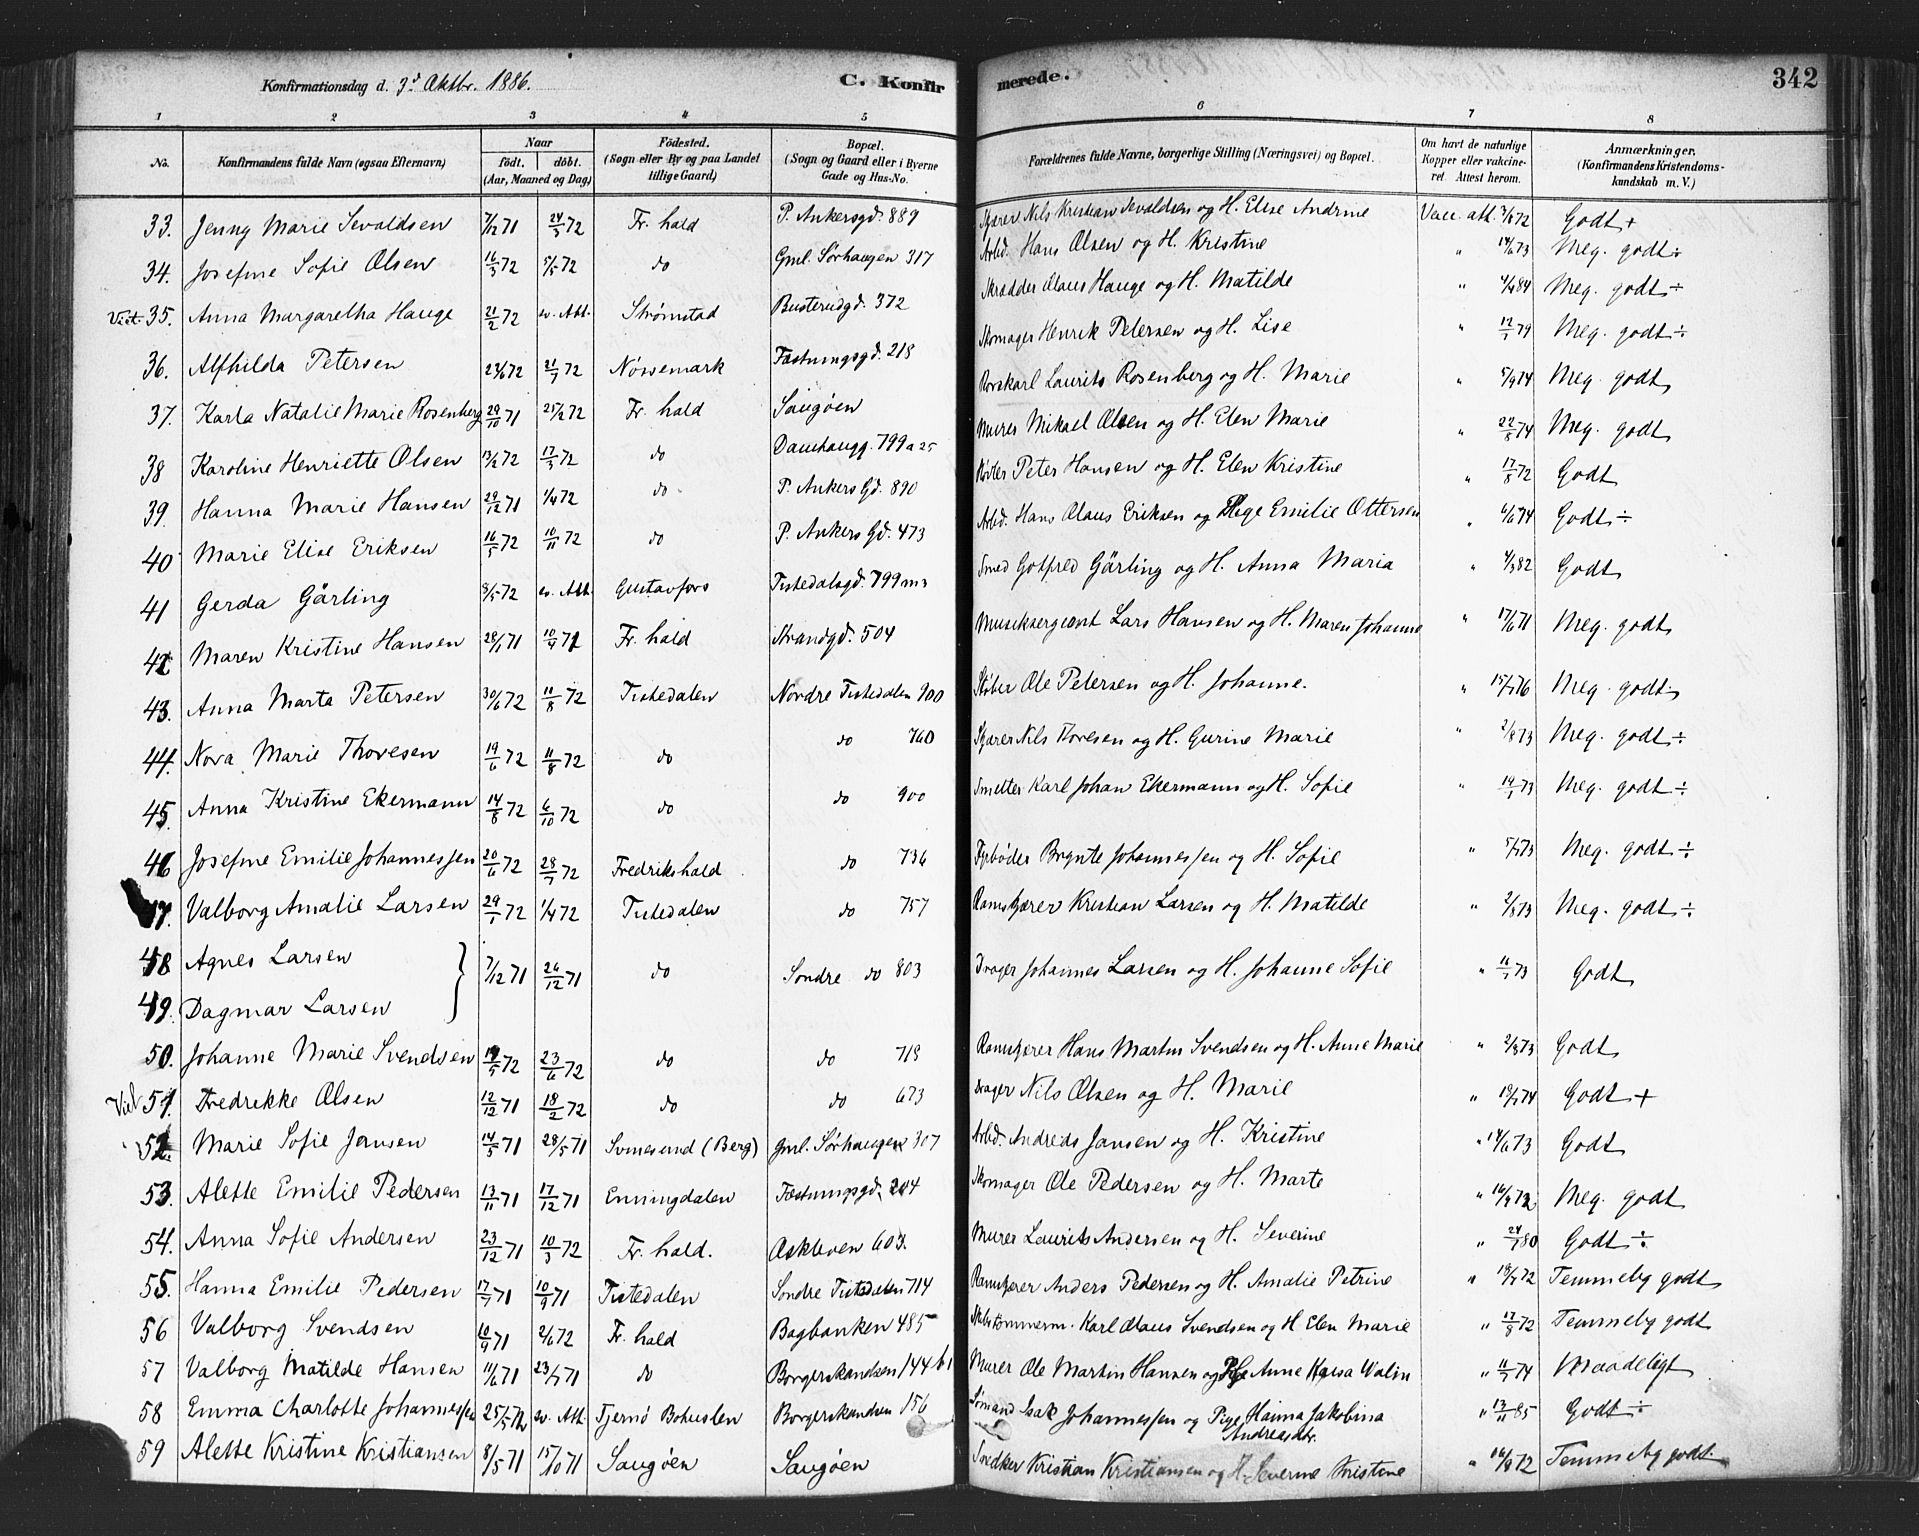 Konfirmationsdag d. 3d Oktbr. 1886. C. Konfirmerede. 342
1 2 3 4 5 6 7 8
No. Konfirmandens fulde Navn (ogsaa Efternavn) Naar født. døbt. (Aar, Maaned og Dag) Fødested. (Sogn eller By og paa Landet tillige Gaard) Bopæl. (Sogn og Gaard eller i Byerne Gade og Hus-No. Forældrenes fulde Navne, borgerlige Stilling (Næringsvei) og Bopæl. Om havt de naturlige Kopper eller vakcineret. Attest herom. Anmærkninger. (Konfirmandens Kristendomskundskab m. V.)
33. Jenny Marie Sevaldsen 7/12 71 24/3 72 Fr. hald P. Ankersgd. 889 Skjærer Nils Kristian Sevaldsen og H. Elise Andrine Vacc. att. Godt +
34. Josefine Sofie Olsen 16/3 72 5/5 72 do Gml. Sørhaugen 317 Arbd. Hans Olsen og H. Kristine " 14/6 73 Meg. godt ÷
35. Anna Margaretha Hauge 21/2 72 ev. Att. Strømstad Busterudgd. 372 Skrædder Olaus Hauge og H. Matilde " 4/4 84 Meg. godt ÷
36. Alfhilda Petersen 23/6 72 21/7 72 Nössemark Fæstningsgd. 218 Skomager Henrik Petersen og H. Lise " 12/7 79 Meg. godt ÷
37. Karla Natalie Marie Rosenberg 29/10 71 25/2 72 Fr. hald Saugøen Rorskarl Laurits Rosenberg og H. Marie " 5/9 74 Meg. godt
38 Karoline Henriette Olsen 13/2 72 17/3 72 do Damhaugg. 799 a 25 Murer Mikael Olsen og H. Elen Marie " 22/8 74 Meg. godt
39. Hanna Marie Hansen 29/12 71 1/4 72 do P. Ankers Gd. 890 Peter Hansen og H. Elen Kristine " 17/8 72 Godt
40 Marie Elise Eriksen 16/5 72 10/11 72 do P. Ankers Gd. 473 Arbd. Hans Olaus Eriksen og Pige Emilie Ottersen " 6/6 74 Godt ÷
41 Gerda Gärling 8/5 72 ev. Att. Gustavfors Tistedalsgd. 799 m 3 Smed Gotfred Gärling og H. Anna Maria " 4/3 82 Godt
42 Maren Kristine Hansen 28/1 71 10/9 71 Fr. hald Strandgd. 504 Musiksergeant Lars Hansen og H. Maren Johanne " 17/6 71 Meg. godt
43. Anna Marta Petersen 30/6 72 11/8 72 Tistedalen Nordre Tistedalen 900 Støber Ole Petersen og H. Johanne. " 15/7 76 Meg. godt
44. Nora Marie Thoresen 19/6 72 11/8 72 do do 760 Skjærer Nils Thoresen og H. Gurine Marie " 2/8 73 Meg. godt ÷
45. Anna Kristine Ekermann 14/8 72 6/10 72 do do 900 Smelter Karl Johan Ekermann og H. Sofie " 19/7 73 Meg. godt ÷
46 Josefine Emilie Johannessen 20/6 72 28/7 72 Fredrikshald do 736 Fyrbøder Brynte Johannessen og H. Sofie " 5/7 73 Meg. godt ÷
47. Valborg Amalie Larsen 29/1 72 1/4 72 Tistedalen do 757 Ramskjærer Kristian Larsen og H. Matilde " 2/8 73 Meg. godt ÷
48 Agnes Larsen } 7/12 71 26/12 71 do Søndre do 803 Drager Johannes Larsen og H. Johanne Sofie " 11/7 73 Godt
49. Dagmar Larsen
50. Johanne Marie Svendsen 72 23/6 72 do do 719 Ramskjærer Hans Martin Svendsen og H. Anne Marie " 2/8 73 Godt
51. Fredrikke Olsen 12/12 71 18/2 72 do do 673 Drager Nils Olsen og H. Marie " 74 Godt +
52. Marie Sofie Jansen 14/5 71 28/5 71 Svinesund (Berg) Gml. Sørhaugen 307 Arbd. Andreas Jansen og H. Kristine " 14/6 73 Godt
53. Alette Emilie Pedersen 13/11 71 17/12 71 Enningdalen Fæstningsgd. 204 Skomager Ole Pedersen og H. Marte " Meg. godt
54. Anna Sofie Andersen 23/12 71 10/3 72 Fr. hald. Askleven 603. Murer Laurits Andersen og H. Severine " 24/7 80 Godt ÷
55. Hanna Emilie Pedersen 17/7 71 10/9 71 Tistedalen Søndre Tistedalen 714 Ramskjærer Anders Pedersen og H. Amalie Petrine " 72 Temmelig godt
56 Valborg Svendsen 10/9 71 2/6 72 Fr. hald Bagbanken 485 Karl Olaus Svendsen og H. Elen Marie " 17/8 72 Temmelig godt
57 Valborg Matilde Hansen 11/6 71 23/7 71 do Borgerskandsen 144 b 1 Murer Ole Martin Hansen og Pige Anne Kajsa Walin " 11/7 74 Maadeligt
58 Emma Charlotte Johannessen 25/5 72 ev. Att. Tjernö Bohuslen Borgerskandsen 156 Sømand Isak Johannessen og Pige Hanna Jakobina Andreasdtr. " 13/11 85 Godt ÷
59 Alette Kristine Kristiansen 8/5 71 15/10 71 Saugøen Saugøen Snedker Kristian Kristiansen og H. Severine Kristine " 72 Temmelig godt.